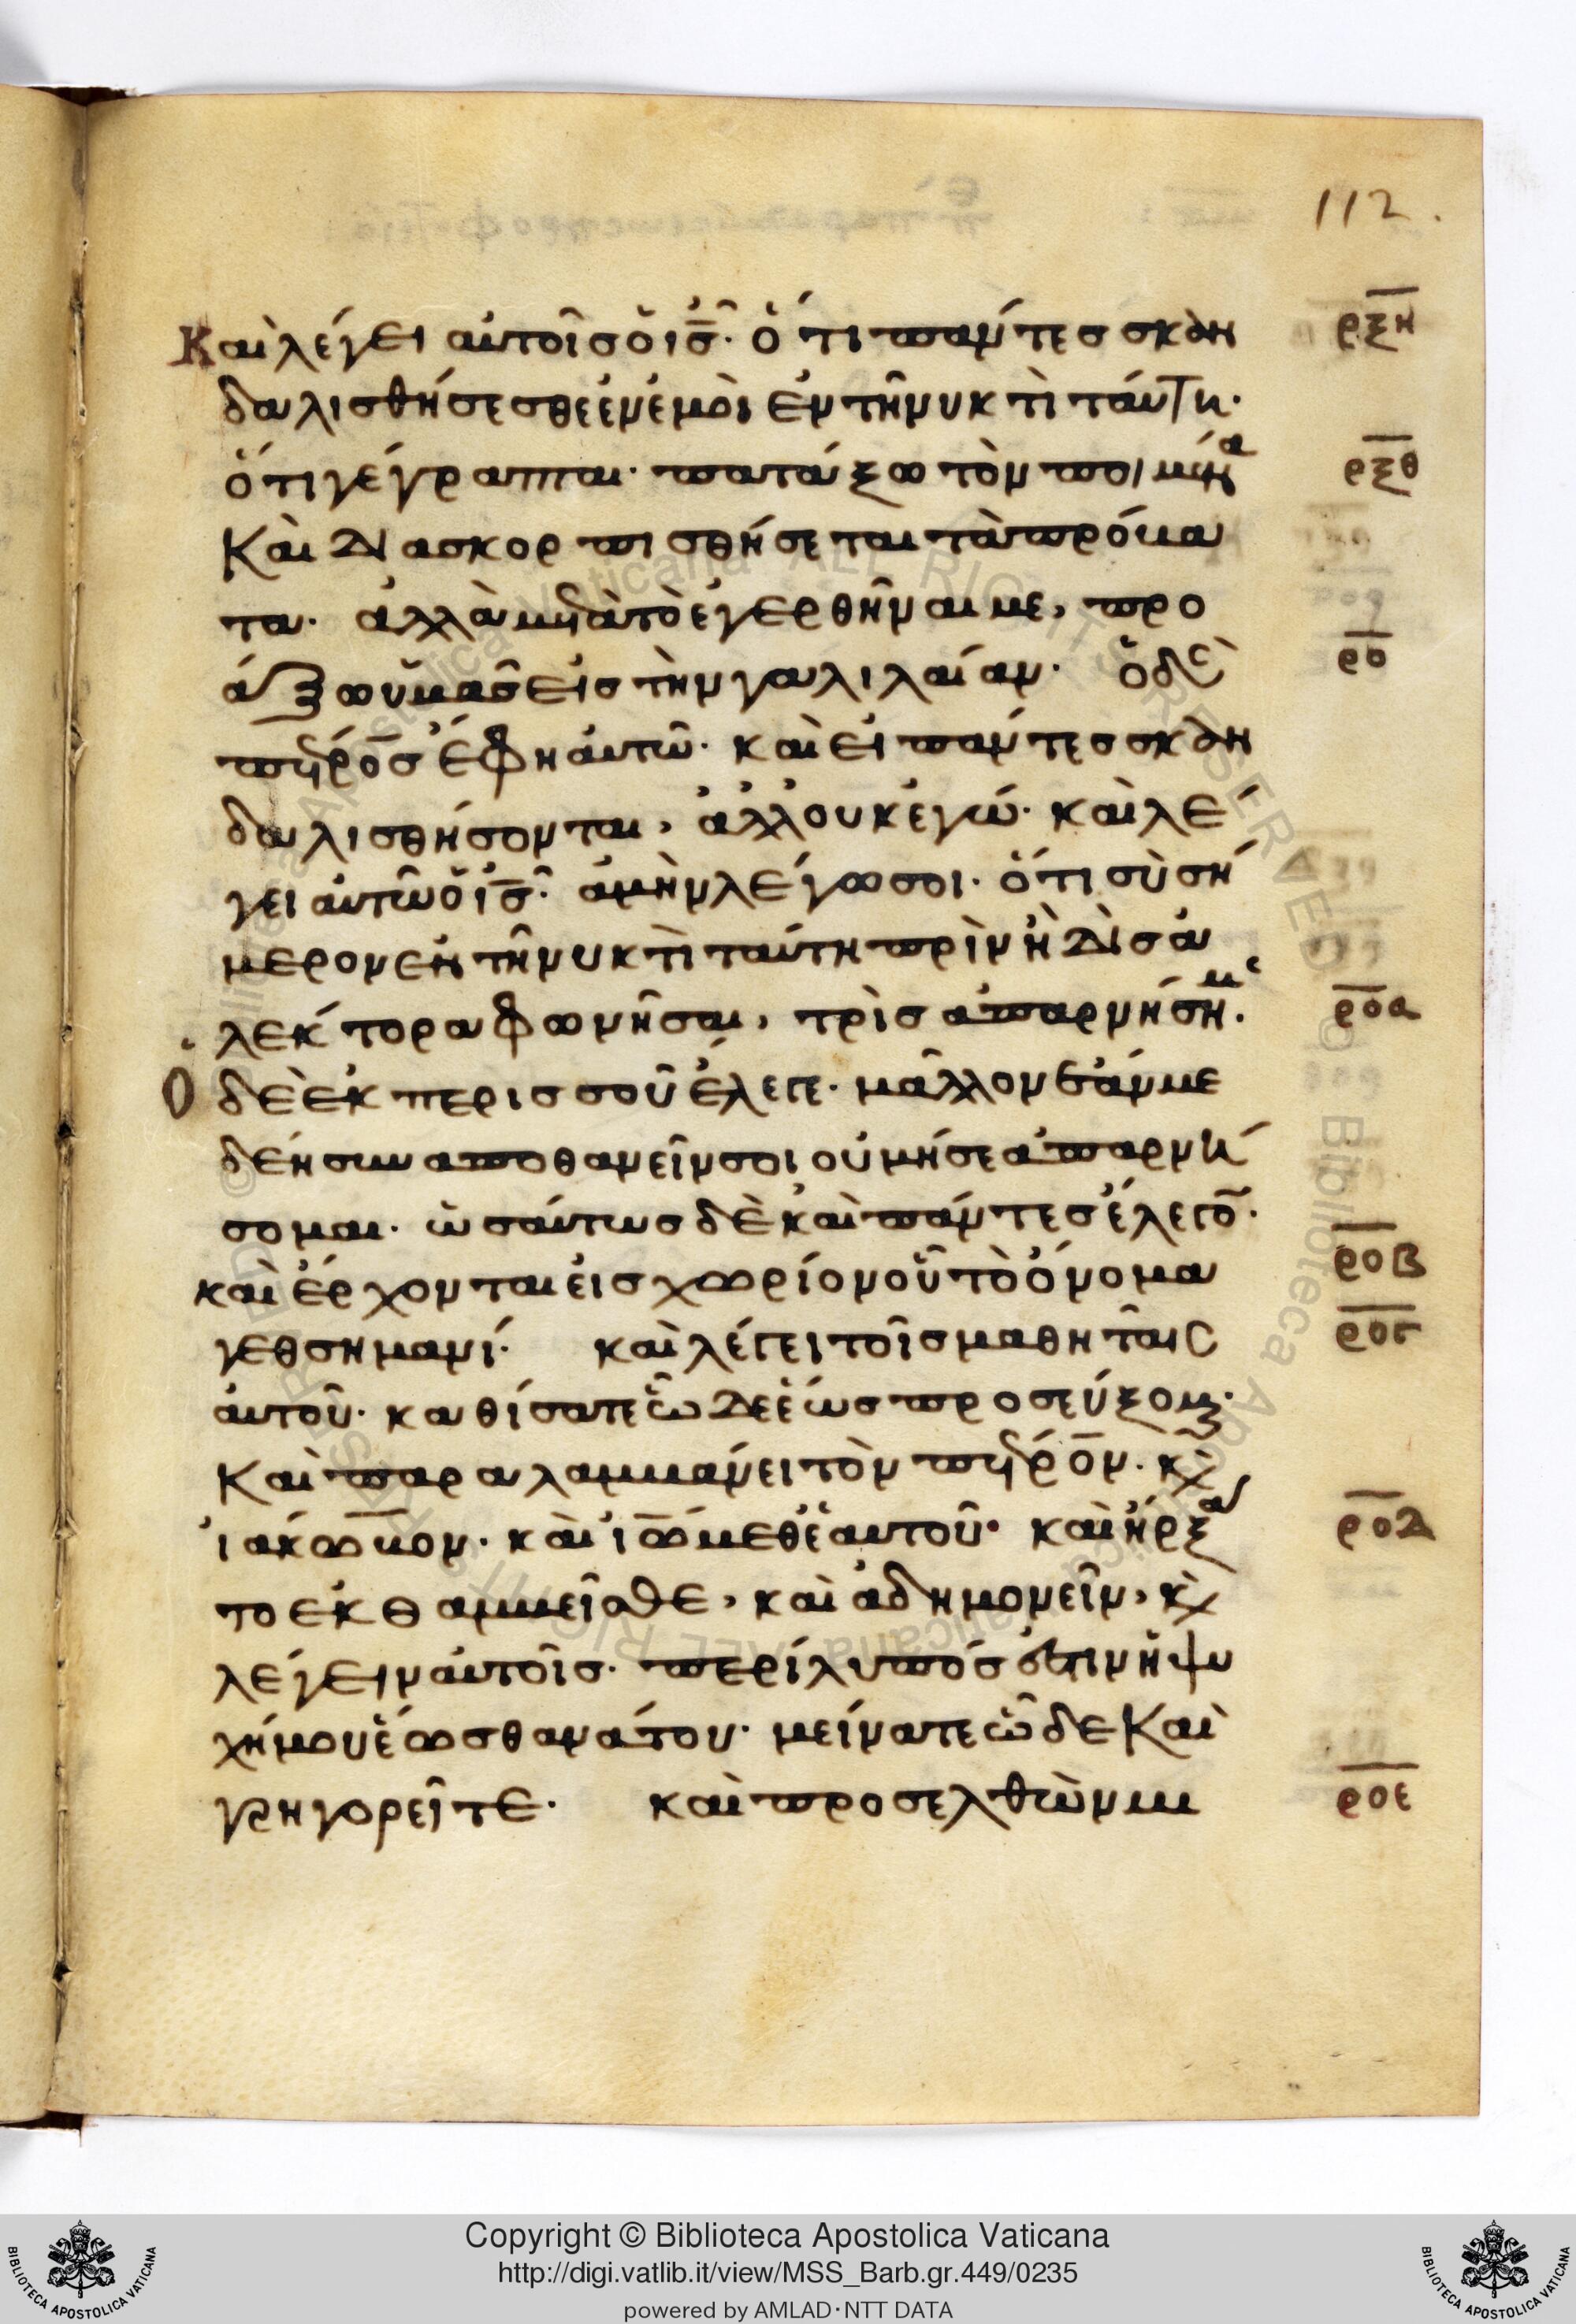 112.
Καὶ λέγει αὐτοῖς ὁ ις· ὅτι πάντες σκαν ρξη
δαλισθήσεσθε ἐν ἐμοὶ ἐν τῆ νυκτὶ ταύτη·
ὅτι γέγραπται· πατάξω τὸν ποιμένα ρξθ
Καὶ διασκορπισθήσεται τὰ πρόβα
τα· ἀλλὰ μετὰ τὸ ἐγερθῆναι με, προ
άξω ὑμᾶς εἰς τὴν γαλιλαίαν· ὁ δὲ ρο
πέτρος ἔφη αὐτῶ· καὶ εἰ πάντες σκαν
δαλισθήσονται, ἀλλ οὐκ ἐγώ· καὶ λέ
γει αὐτῶ ὁ ις· ἀμὴν λέγω σοι· ὅτι σὺ σή
μερον ἐν τῆ νυκτὶ ταύτη πρὶν ἢ δὶς ἀ
λέκτορα φωνῆσαι, τρὶς ἀπαρνήση με· ροα
Ο δὲ ἐκ περισσοῦ ἔλεγε· μᾶλλον ἐάν με
δέη συναποθανεῖν σοι οὐ μή σε ἀπαρνή
σομαι· ὡσαύτως δὲ καὶ πάντες ἔλεγον·
καὶ ἔρχονται εἰς χωρίον οὗ τὸ ὄνομα ροβ
γεθσημανί· καὶ λέγει τοῖς μαθηταῖς ρογ
αὐτοῦ· καθίσατε ὧδε ἕως προσεύξομαι·
Καὶ παραλαμβάνει τὸν πέτρον· κὶ
ἰάκωβον· καὶ ἰω μεθ ἑαυτοῦ· καὶ ἤρξα ροδ
το ἐκθαμβεῖσθε, καὶ ἀδημονεῖν, κὶ
λέγειν αὐτοῖς· περίλυπός ἐστιν ἡ ψυ
χή μου ἕως θανάτου· μείνατε ὧδε Καὶ
γρηγορεῖτε· καὶ προσελθὼν μι ροε
Copyright © Biblioteca Apostolica Vaticana
http://digi.vatlib.it/view/MSS_Barb.gr.449/0235
powered by AMLAD·NTT DATA
BIBLIOTECA APOSTOLICA VATICANA
BIBLIOTECA APOSTOLICA VATICANA